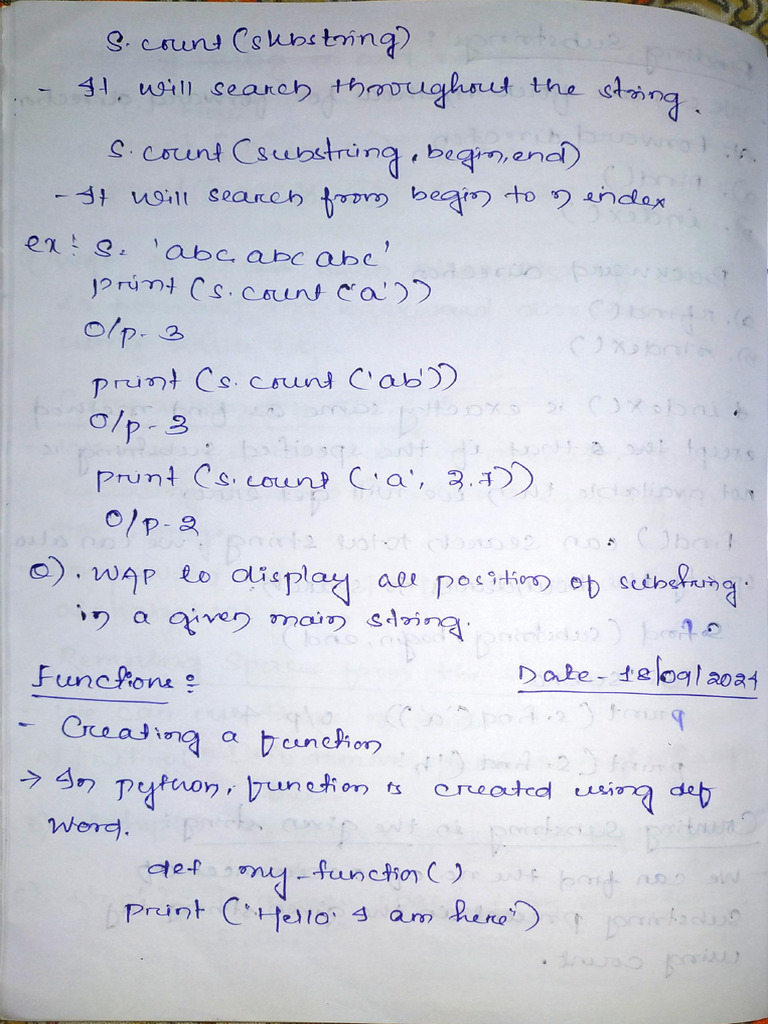 S. count (substring)
- It will search throughout the string.
S. count (substring, begin, end)
- It will search from begin to n index
ex: S = 'abc abc abc'
print (s. count ('a'))
O/p - 3
print (s. count ('ab'))
O/p - 3
print (s. count ('a', 3.7))
O/p - 2
Q). WAP to display all position of substring
in a given main string.
Functions: Date - 18/09/2021
- Creating a function
→ In python, function is created using def
word.
def my-function()
print ("Hello I am here")